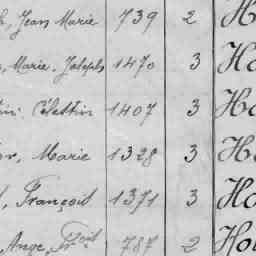 Jean Marie 739 2
Marie, Joseph 1470 3
Célestin 1407 3 Ho
Marie 1328 3
François 1371 3 Ho
Ange, Fçois 787 2 Hou